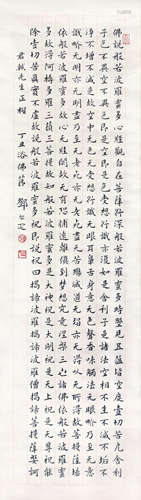 佛說般若波羅蜜多心經觀自在菩薩行深般若波羅蜜多時照見五蘊皆空度壹切苦厄舍利
子色不異空空不異色色即是空空即是色受想行識亦復如是舍利子是諸法空相不生不滅不垢不
淨不增不減是故空中无色无受想行識无眼耳鼻舌身意无色聲香味觸法无眼界乃至无意
識界无无明亦无无明盡乃至无老死亦无老死盡无苦集滅道无智亦无得以无所得故菩提薩埵
依般若波羅蜜多故心无罣礙无罣礙故无有恐怖遠離顛倒夢想究竟涅槃三世諸佛依般若波羅蜜
多故得阿耨多羅三藐三菩提故知般若波羅蜜多是大神祝是大明祝是无上祝是无等等祝能
除壹切苦真實不虛故說般若波羅蜜多祝即說祝曰揭諦揭諦波羅揭諦波羅僧揭諦菩提薩婆訶
先生正
丁丑浴佛 鄧